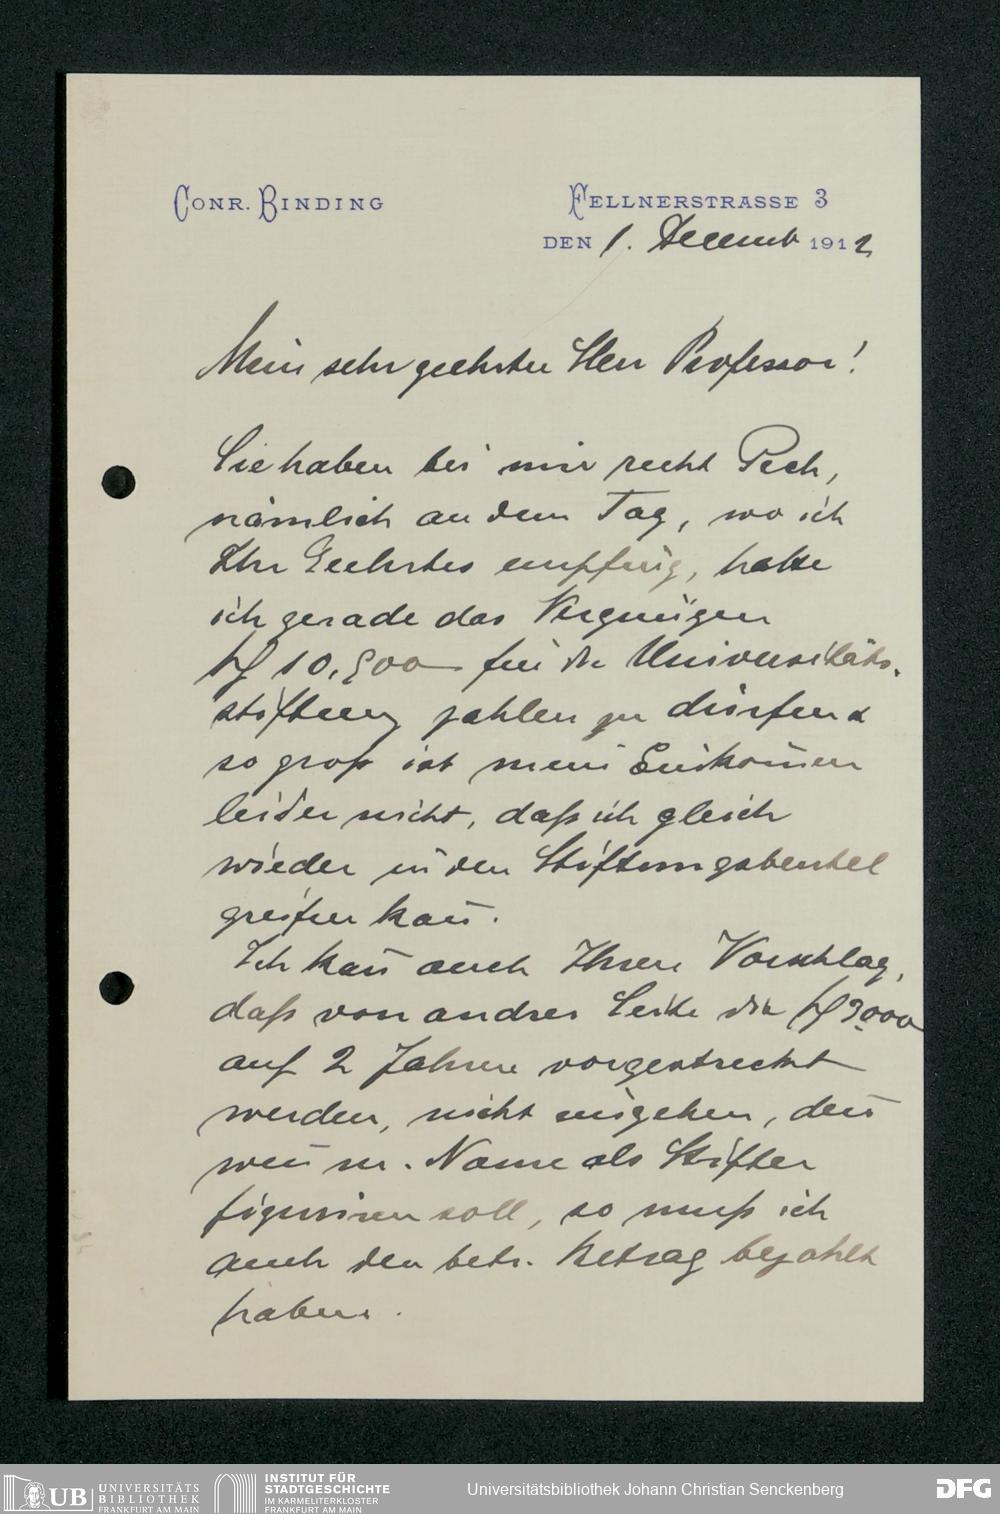 CONR. BINDING
FELLNERSTRASSE 3
DEN 1. Decemb 1912
Mein sehr geehrter Herr Professor!
Sie haben bei mir recht Pech,
nämlich an dem Tag, wo ich
Ihr Geehrtes empfing, hatte
ich gerade das Vergnügen
M 10,500 für die Universitäts-
stiftung zahlen zu dürfen &
so groß ist mein Einkom̄en
leider nicht, daß ich gleich
wieder in den Stiftungsbeutel
greifen kan̄.
Ich kan̄ auch Ihren Vorschlag,
daß von andrer Seite die M 3000
auf 2 Jahre vorgestreckt
werden, nicht eingehen, den̄
wen̄ m. Name als Stifter
figuriren soll, so muß ich
auch den betr. Betrag bezahlt
haben.
UB UNIVERSITÄTS
BIBLIOTHEK
FRANKFURT AM MAIN
INSTITUT FÜR
STADTGESCHICHTE
IM KARMELITERKLOSTER
FRANKFURT AM MAIN
Universitätsbibliothek Johann Christian Senckenberg
DFG